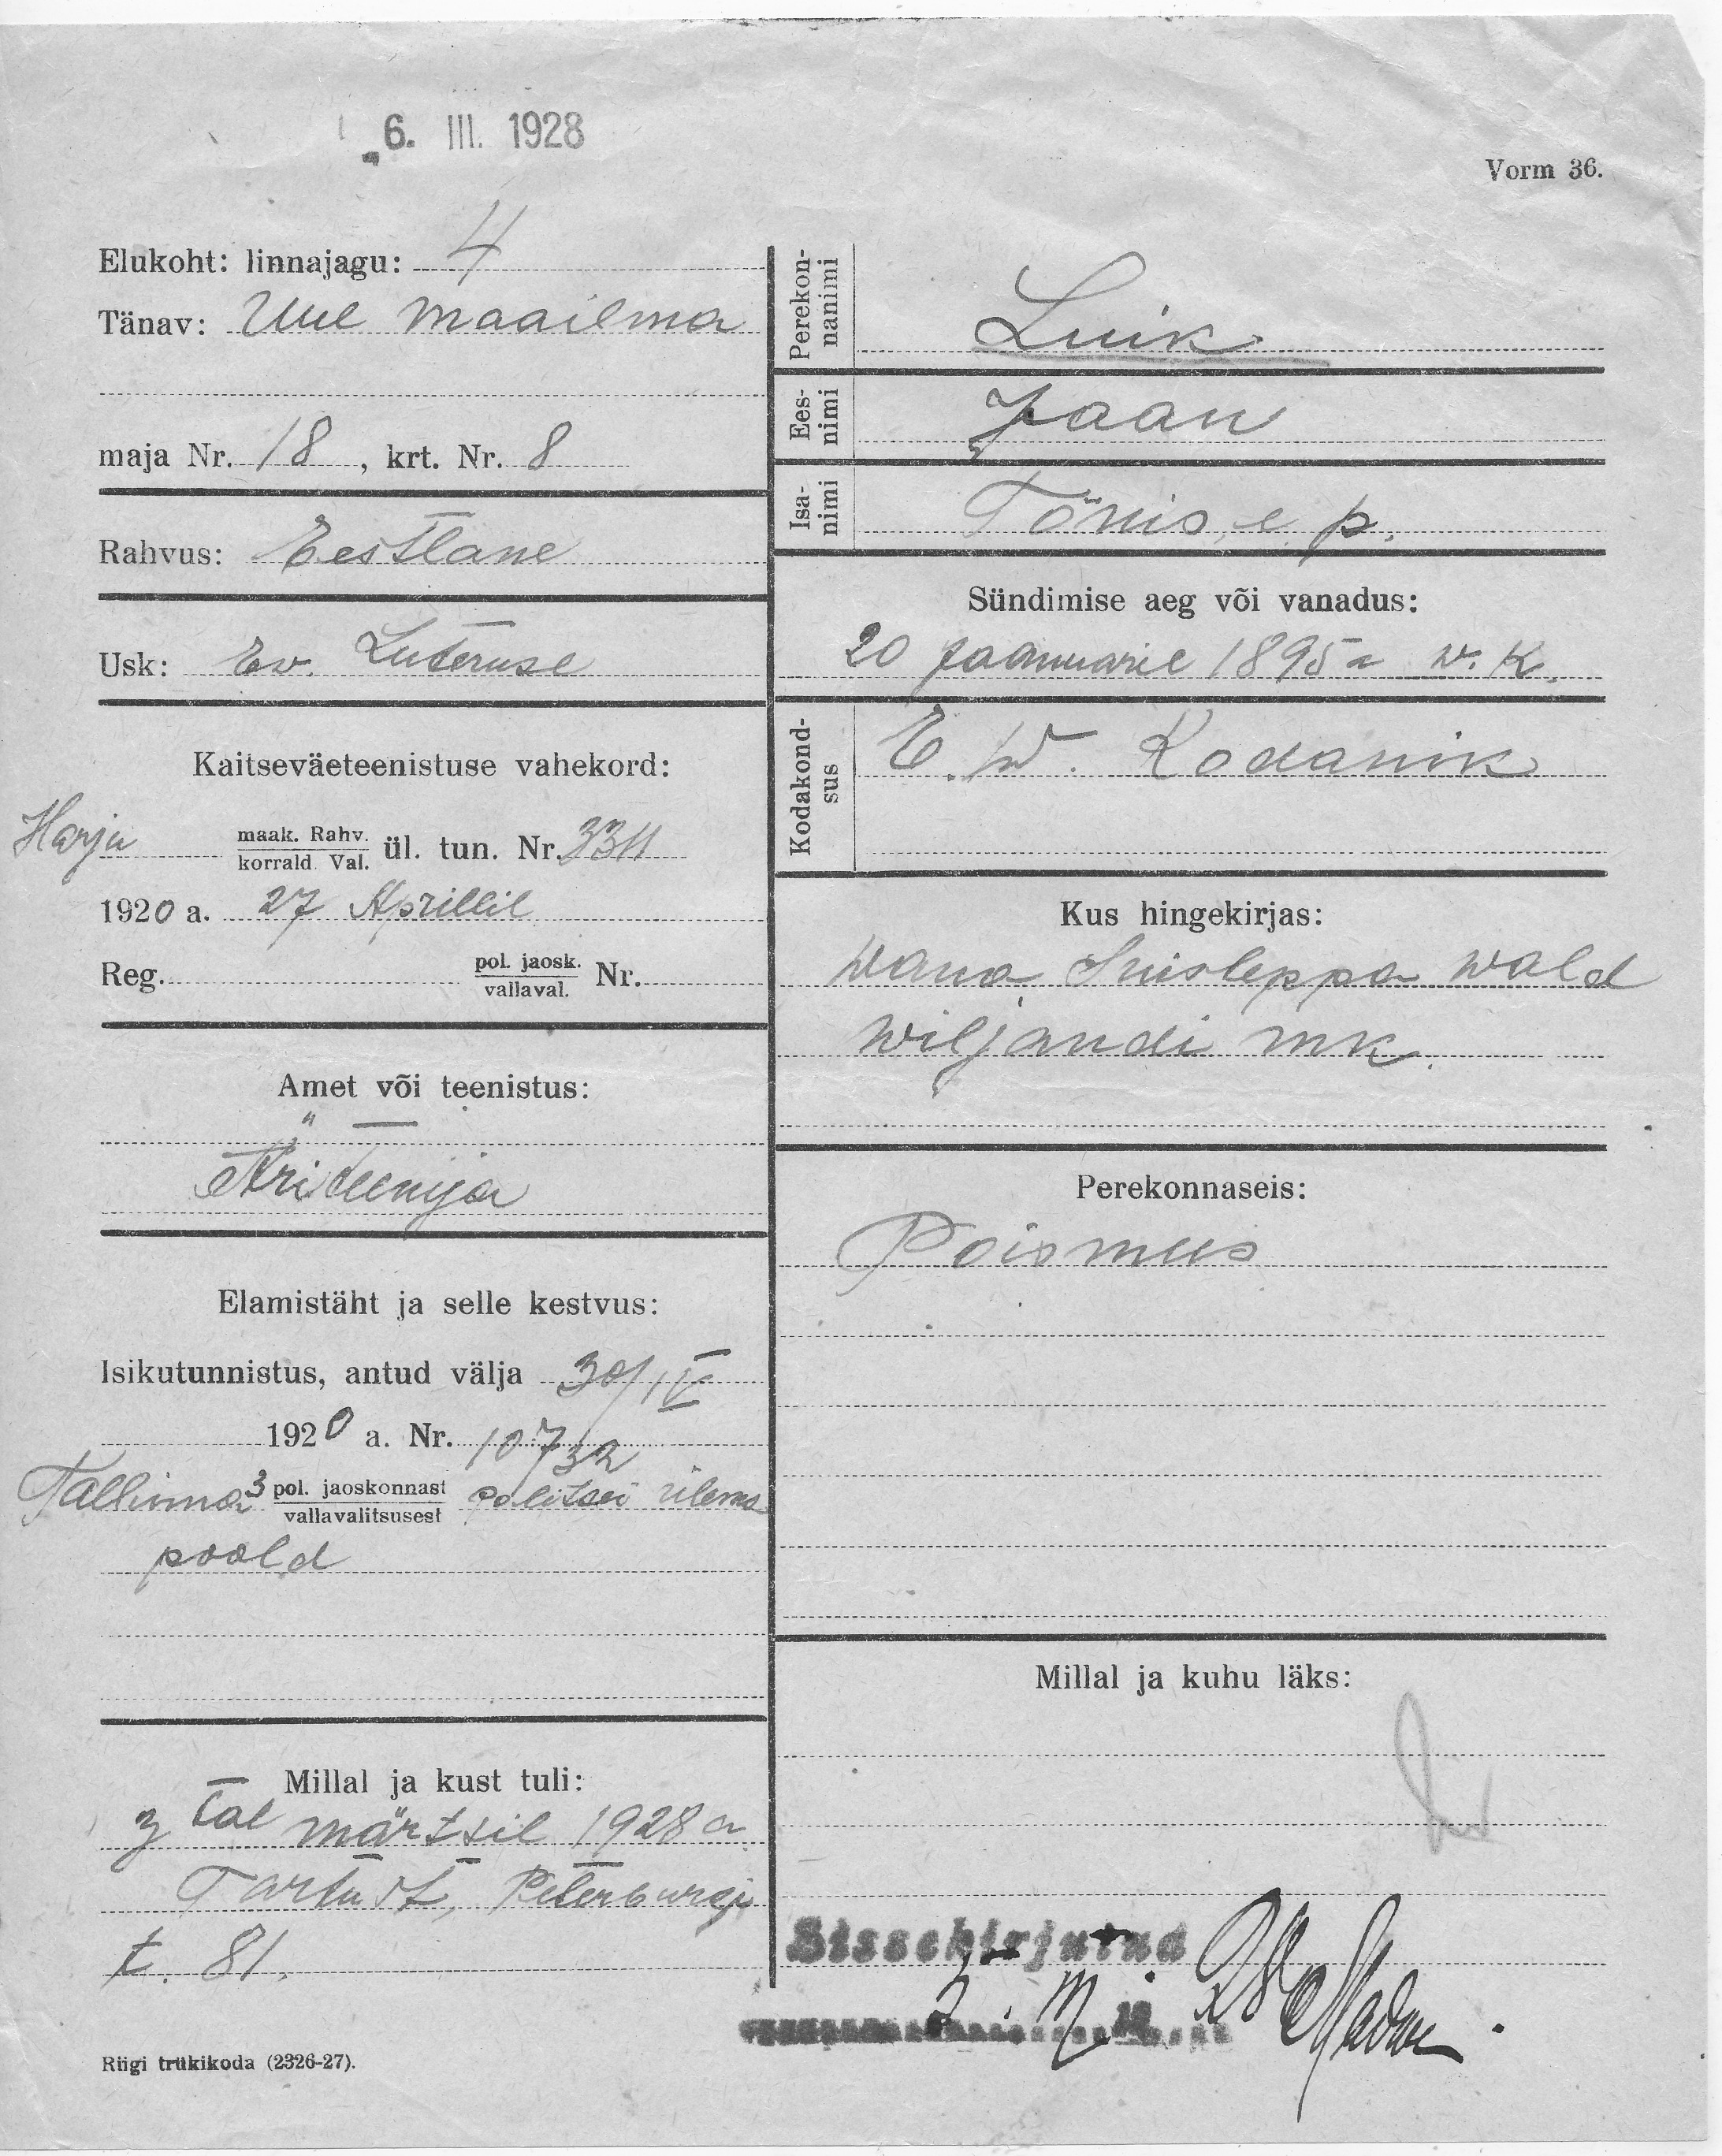 6. III. 1928
Vorm 36.
Elukoht: linnajagu: 4
Tänav: Uue maailma
maja Nr. 18, krt. Nr. 8
Rahvus: Eestlane
Usk: Ev. Luteruse
Kaitseväeteenistuse vahekord:
Harju maak. Rahv. korrald. Val. ül. tun. Nr. 3311
1920 a. 27 Aprillil
Reg. pol. jaosk. vallaval. Nr.
Amet või teenistus:
Äriteenija
Elamistäht ja selle kestvus:
Isikutunnistus, antud välja 30/IV
1920 a. Nr. 10732
Tallinna 3 pol. jaoskonnast vallavalitsusest politsei ülema
poold
Millal ja kust tuli:
3 tal märtsil 1928 a
Tartust, Peterburgi
t. 81.
Riigi trükikoda (2326-27).
Perekonnanimi
Luik
Eesnimi
Jaan
Isanimi
Tõnis, e. p.
Sündimise aeg või vanadus:
20 Jaanuaril 1895 a w. k.
Kodakondsus
E. W. Kodanik
Kus hingekirjas:
Wana Suisleppa wald
Wiljandi mk.
Perekonnaseis:
Poismees
Millal ja kuhu läks:
Sissekirjutud